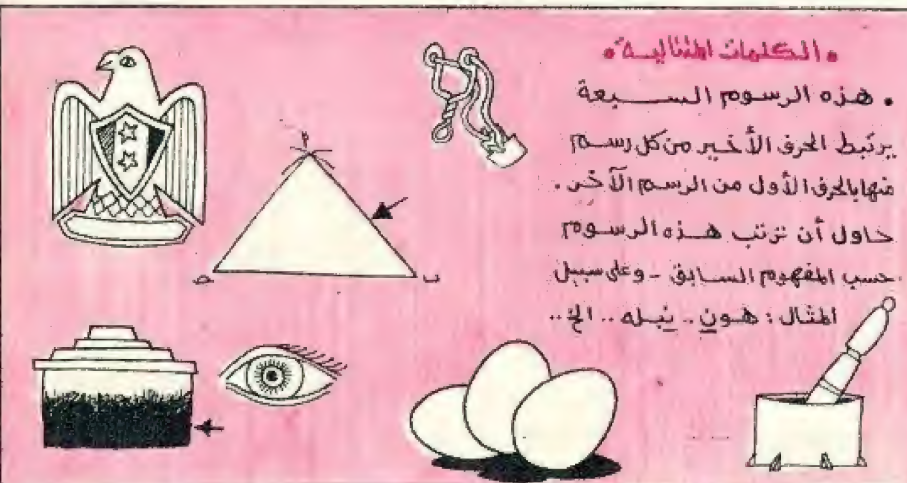 • الكلمات المتتالية •
• هذه الرسوم السبعة
يرتبط الحرف الأخير من كل رسم
منها بالحرف الأول من الرسم الآخر .
حاول أن ترتب هذه الرسوم
حسب المفهوم السابق - وعلى سبيل
المثال : هون .. نبله .. الخ ..
م
ب
حـ